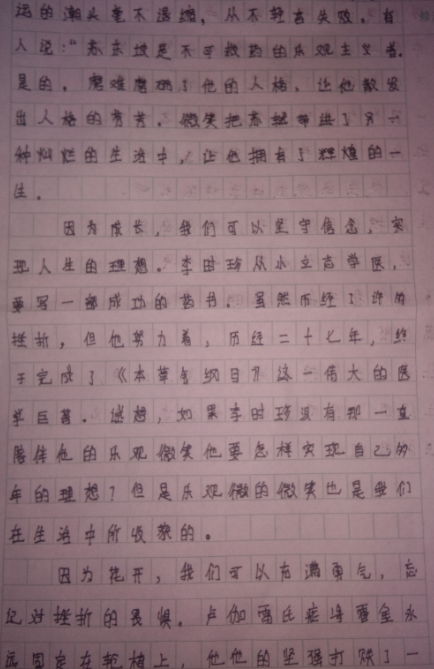 运的潮头毫不退缩，从不轻言失败。有
人说：“苏东坡是不可救药的乐观主义者。
是的，磨难磨砺了他的人格，让他散发
出人格的芳芳。微笑把苏轼带进了另一
种灿烂的生活中，让他拥有了辉煌的一
生。
因为成长，我们可以坚守信念，实
现人生的理想。李时珍从小立志学医，
要写一部成功的药书。虽然历经了许多
挫折，但他努力着，历经二十七年，终
于完成了《本草纲目》这一伟大的医
学巨著。试想，如果李时珍没有那一直
陪伴他的乐观微笑他要怎样实现自己多
年的理想？但是乐观微的微笑也是我们
在生活中所收获的。
因为花开，我们可以充满勇气，忘
记对挫折的畏惧。卢伽雷氏症将霍金永
远固定在轮椅上，他他的坚强打败了一